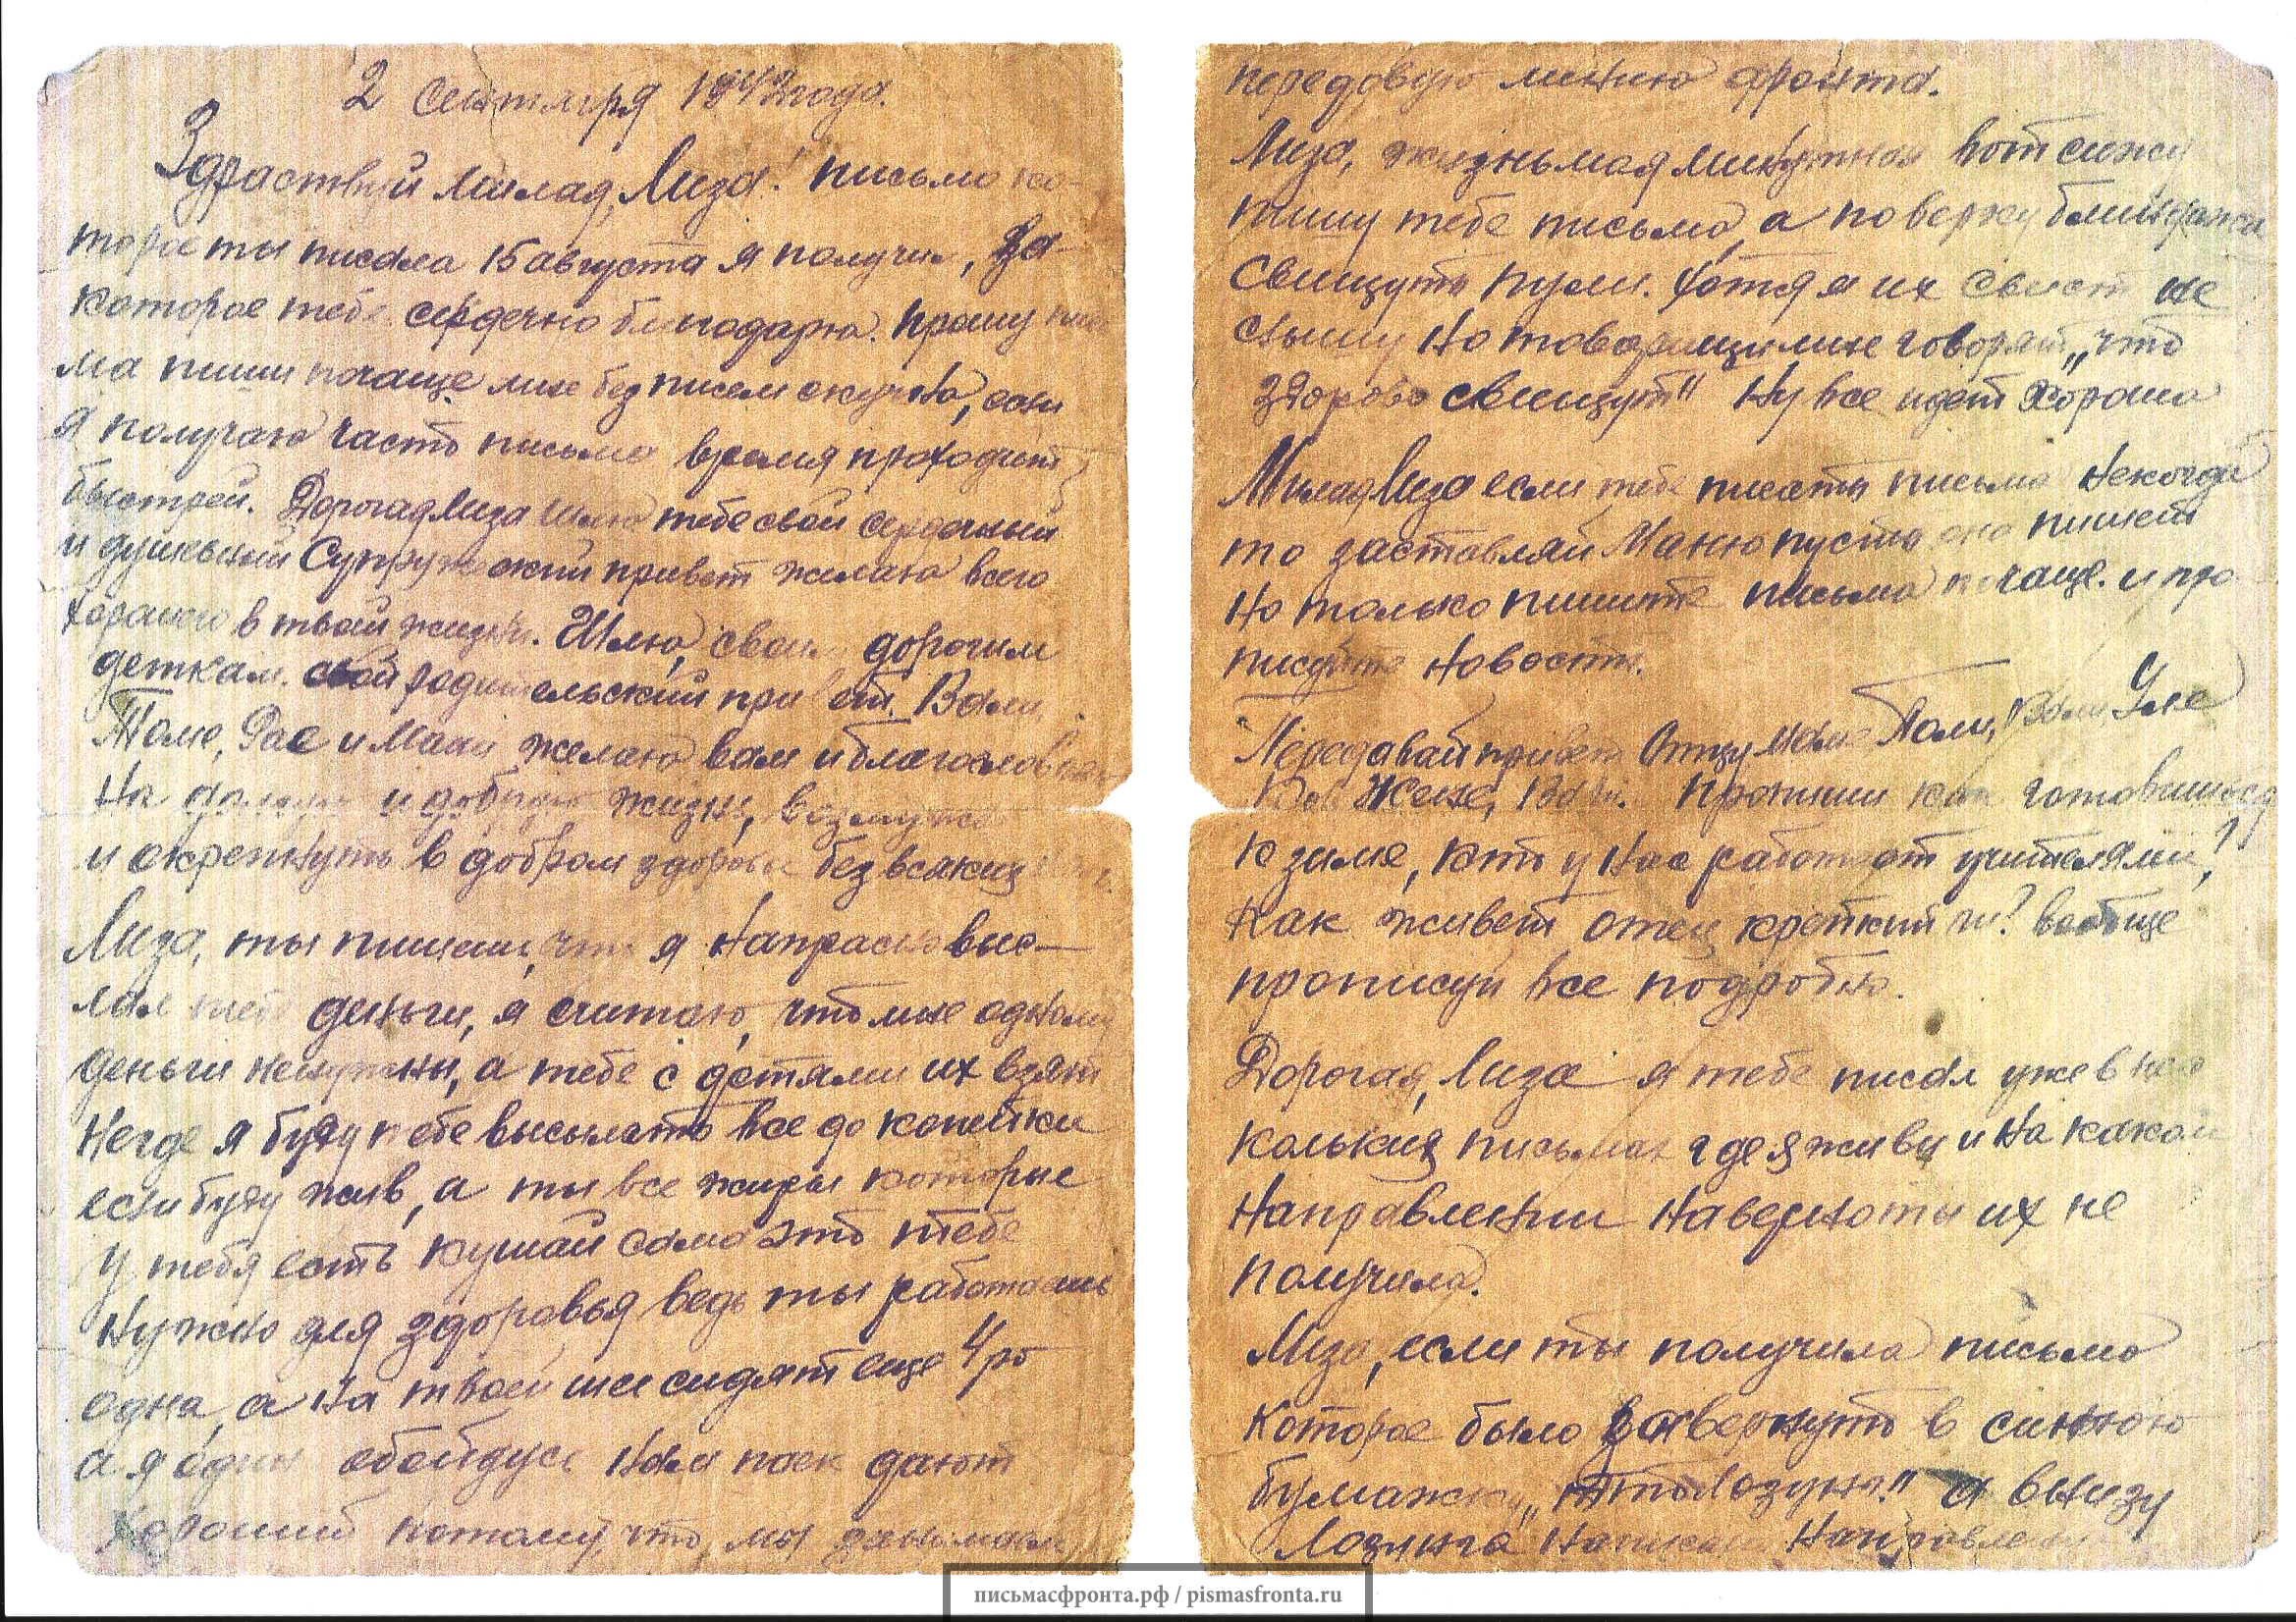 2 Сентября 1942 года.
Здраствуй милая Лиза! письмо ко-
торое ты писала 15 августа я получил, за
которое тебе сердечно благодарю. Прошу
пиши почаще мне без писем скучно, если
я получаю часто письма время проходит
быстрей. Дорогая Лиза шлю тебе свой сердечный
и душевный Супружеский привет желаю всего
хорошего в твоей жизни. Шлю своим дорогим
деткам свой родительский привет. Вам
Томе, Рае и Мани желаю вам и благословляю
На и добрую жизнь,
и окрепнуть в добром здоровье без всяких
Лиза, ты пишеш, что я Напрасно выс-
лал тебе деньги, я считаю, что мне одному
деньги ненужны, а тебе с детями их взять
Негде я буду тебе высылать все до копейки
если буду жив, а ты все жиры которые
у тебя есть кушай сама это тебе
Нужно для здоровья ведь ты работаешь
одна, а На твоей шеи сидят еще 4 ро
а я один обойдусь Нам паек дают
Хороший потому, что мы занимаем
передовую линию фронта.
Лиза, жизнь моя минутная вот сижу
пишу тебе письмо, а по верху блиндажа
свищуть пули. Хотя я их свист не
слышу Но товарищи мне говорят „что
здорово свищут" Ну все идет хорошо
Милая Лиза если тебе писать письма Некогда
то заставляй Маню пусть она пишет
Но только пишите письма почаще. и про
писуйте Новости.
Передавай привет Отцу маме Поли, Вали Уле
Жене, Вани. Пропиши как готовишься
к зиме, кто у Нас работает учителями,?
Как живет отец крепкий ли? вообще
прописуй все подробно.
Дорогая, Лиза я тебе писал уже в нес
кольких письмах где я живу и На каком
Направлении Наверно ты их не
получила.
Лиза, если ты получила письмо
которое было завернуто в синюю
бумажку „ Лозунг." а внизу
Лозунга Написан Направление
письмасфронта.рф / pismasfronta.ru